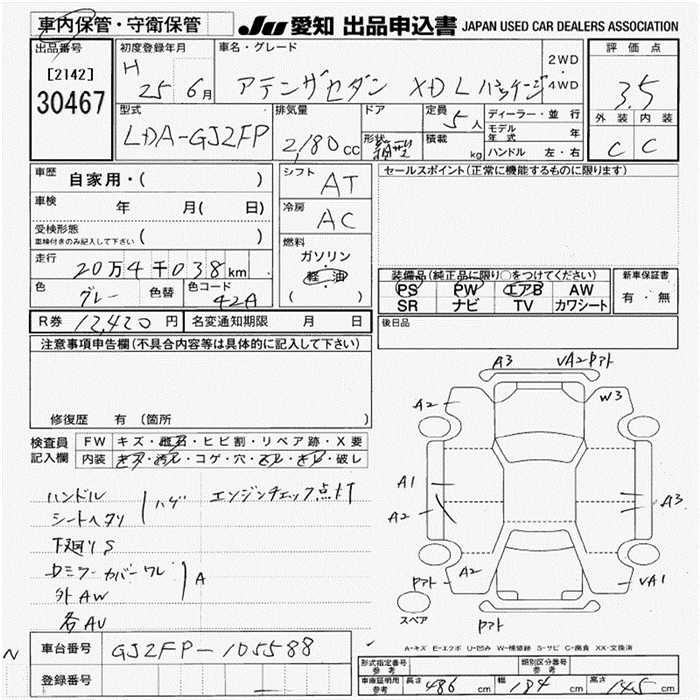 車内保管・守衛保管
JU 愛知 出品申込書 JAPAN USED CAR DEALERS ASSOCIATION
出品番号
[2142]
30467
初度登録年月
H 25 6月
車名・グレード
アテンザセダン XD Lパッケージ
2WD
4WD
評価点
3.5
外装 内装
C C
型式
LDA-GJ2FP
排気量
2,180 cc
ドア
形状
定員
5人
積載
kg
ディーラー・並行
モデル年式 年
ハンドル 左・右
車歴
自家用・( )
車検
年 月( 日)
受検形態
車検付きのみ記入して下さい ( )
走行
20万4千038km
色
グレー
色替
色コード
42A
シフト
AT
冷房
AC
燃料
ガソリン
軽・油
( )
セールスポイント(正常に機能するものに限ります)
装備品(純正品に限り○をつけてください)
PS PW エアB AW
SR ナビ TV カワシート
新車保証書
有・無
R券 12,420円
名変通知期限 月 日
後日品
注意事項申告欄(不具合内容等は具体的に記入して下さい)
修復歴 有 (箇所 )
検査員記入欄
FW キズ・飛石・ヒビ割・リペア跡・X要
内装 キズ・汚レ・コゲ・穴・スレ・キレ・破レ
ハンドル
シートヘタリ
ハゲ
エンジンチェック点灯
下廻りS
Dミラーカバーワレ
外AW
A
各AU
A3 VA2アト
A2 W3
A1
A2 A3
アト A2 VA1
アト
スペア
A-キズ E-エクボ U-凹み W-補修跡 S-サビ C-腐食 XX-交換済
N
車台番号
GJ2FP-105588
登録番号
型式指定番号
参考
類別区分番号
参考
車庫証明用
参考
長さ 486 cm 幅 184 cm 高さ 145 cm